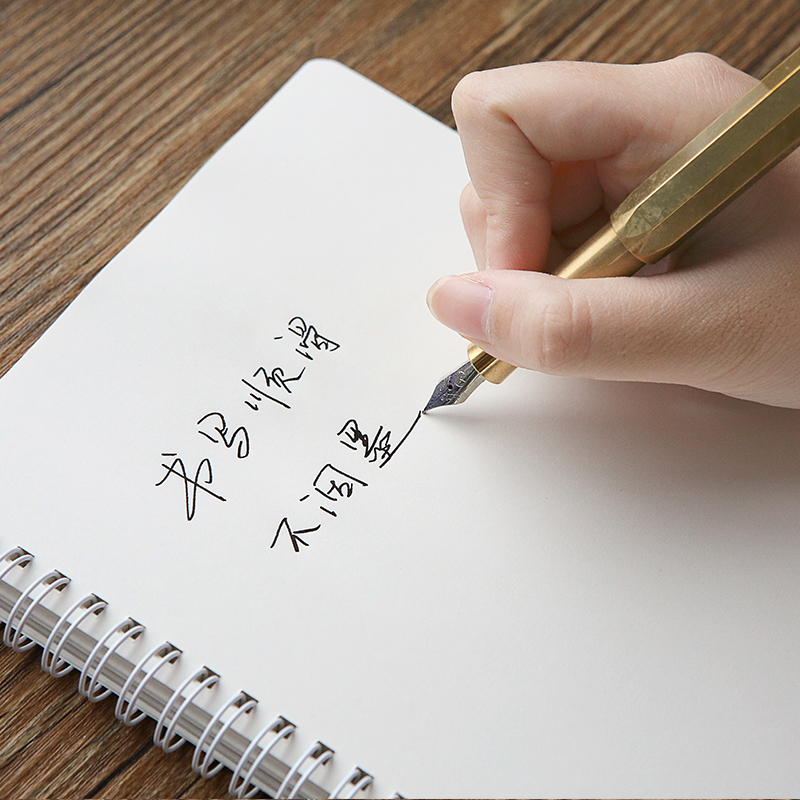 书写顺滑
不洇墨